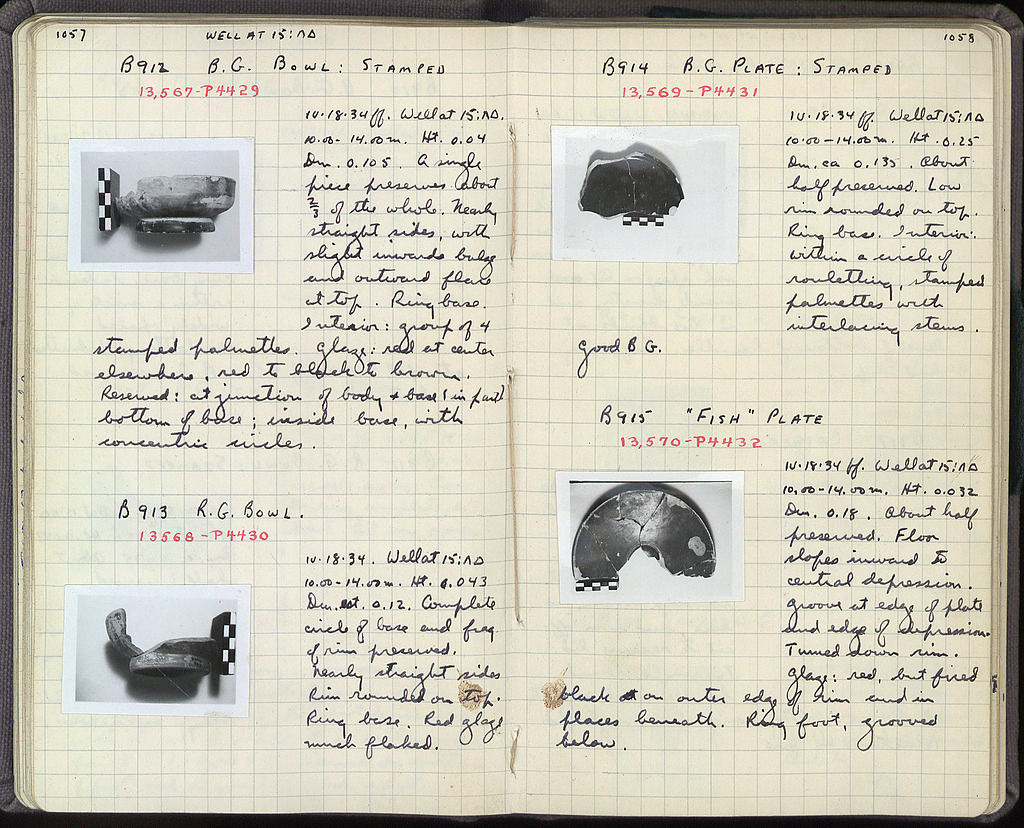 1057
WELL AT 15:ΛΔ
B912 B.G. BOWL: STAMPED
13,567-P4429
IV.18.34 ff. Well at 15:ΛΔ.
10.00-14.00m. Ht. 0.04
Dm. 0.105. A single
piece preserves about
2/3 of the whole. Nearly
straight sides, with
slight inwards bulge
and outward flare
at top. Ring base.
Interior: group of 4
stamped palmettes. Glaze: red at center
elsewhere, red to black to brown.
Reserved: at junction of body + base (in part)
bottom of base; inside base, with
concentric circles.
B913 R.G. BOWL.
13568-P4430
IV.18.34. Well at 15:ΛΔ
10.00-14.00m. Ht. 0.043
Dm. est. 0.12. Complete
circle of base and frag
of rim preserved.
Nearly straight sides
Rim rounded on top.
Ring base. Red glaze
much flaked.
1058
B914 B.G. PLATE: STAMPED
13,569-P4431
IV.18.34 ff. Well at 15:ΛΔ
10.00-14.00m. Ht. 0.25
Dm. ca 0.135. About
half preserved. Low
rim rounded on top.
Ring base. Interior:
within a circle of
rouletting, stamped
palmettes with
interlacing stems.
Good B G.
B915 "FISH" PLATE
13,570-P4432
IV.18.34 ff. Well at 15:ΛΔ
10.00-14.00m. Ht. 0.032
Dm. 0.18. About half
preserved. Floor
slopes inward to
central depression.
Groove at edge of plate
and edge of depression.
Turned down rim.
Glaze: red, but fired
black on outer edge of rim and in
places beneath. Ring foot, grooved
below.